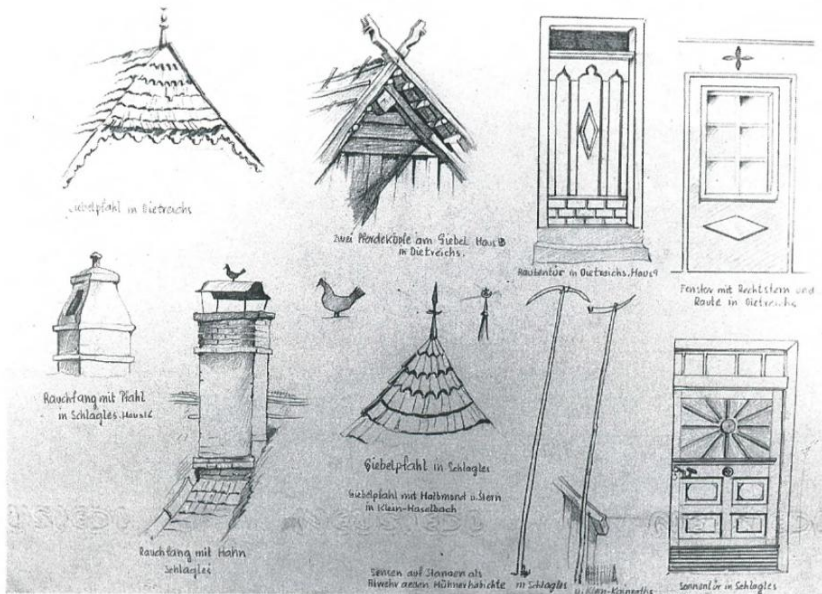 Giebelpfahl in Dietreichs
zwei Pferdeköpfe am Giebel Haus 13
in Dietreichs.
Rautentür in Dietreichs. Haus 9
Fenster mit Rechtstern und
Raute in Dietreichs
Rauchfang mit Pfahl
in Schlagles. Haus 16
Giebelpfahl in Schlagles
Giebelpfahl mit Halbmond u. Stern
in Klein-Haselbach
Rauchfang mit Hahn
Schlagles
Sensen auf Stangen als
Abwehr gegen Hühnerhabichte
in Schlagles
u. Klein-
Sonnentür in Schlagles